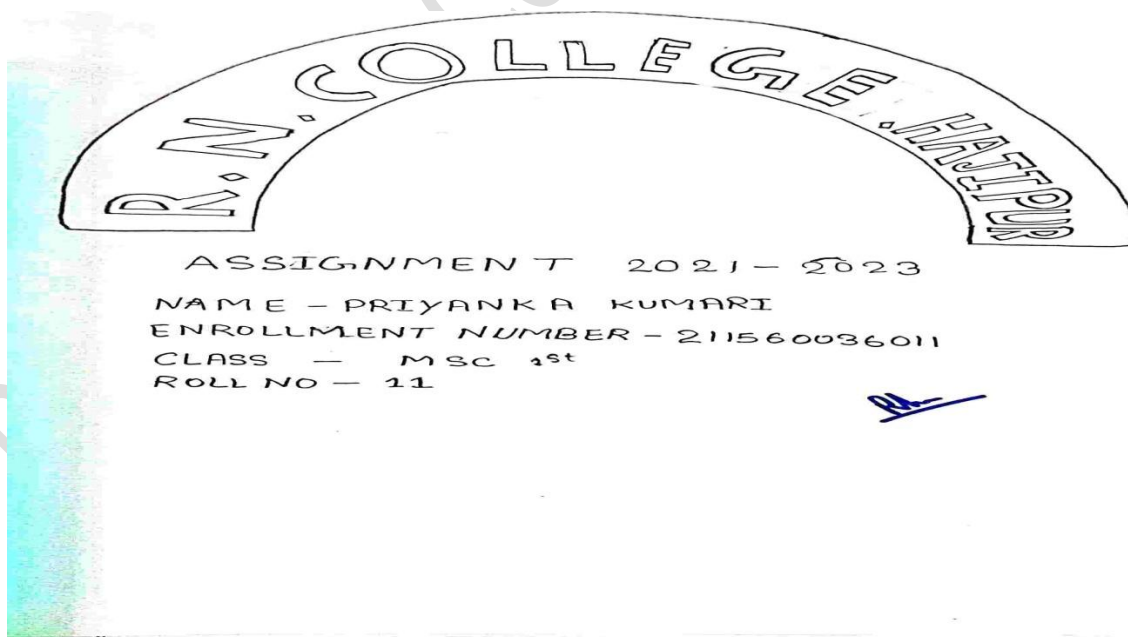 R.N.COLLEGE.HAJIPUR
ASSIGNMENT 2021-2023
NAME - PRIYANKA KUMARI
ENROLLMENT NUMBER - 211560036011
CLASS - MSC 1st
ROLL NO - 11